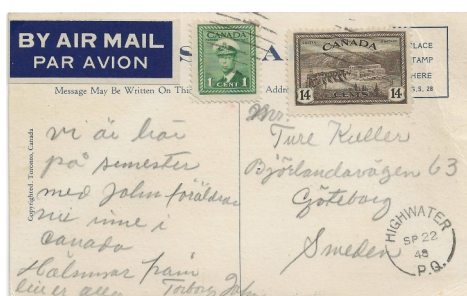 BY AIR MAIL
PAR AVION
CANADA
1 CENT 1
CANADA
14 CENTS 14
PLACE
STAMP
HERE
G.S. 28
Message May Be Written On This
Addre
Copyrighted. Toronto, Canada
vi är här
på semester
med John föräldrar
inne i
Canada
Hälsningar från
Torborg John
Mr.
Ture Kuller
Björlandavägen 63
Göteborg
Sweden
HIGHWATER
SP 22
48
P.Q.